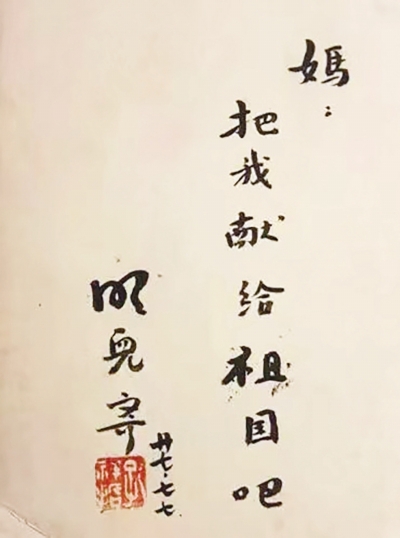 媽：
把我献给祖国吧
明兒寄
廿七·七七